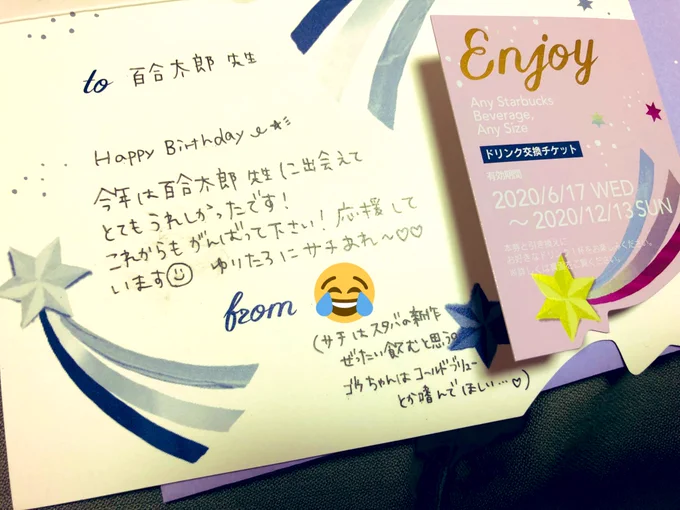 to 百合太郎 先生
Happy Birthday
今年は百合太郎 先生に出会えて
とてもうれしかったです!
これからもがんばって下さい! 応援して
います☺ ゆりたろにサチあれ〜♡♡
from
(サチはスタバの新作
ぜったい飲むと思う。
ゴウちゃんはコールドブリュー
とか嗜んでほしい…♡)
Enjoy
Any Starbucks
Beverage,
Any Size
ドリンク交換チケット
有効期間
2020/6/17 WED
〜2020/12/13 SUN